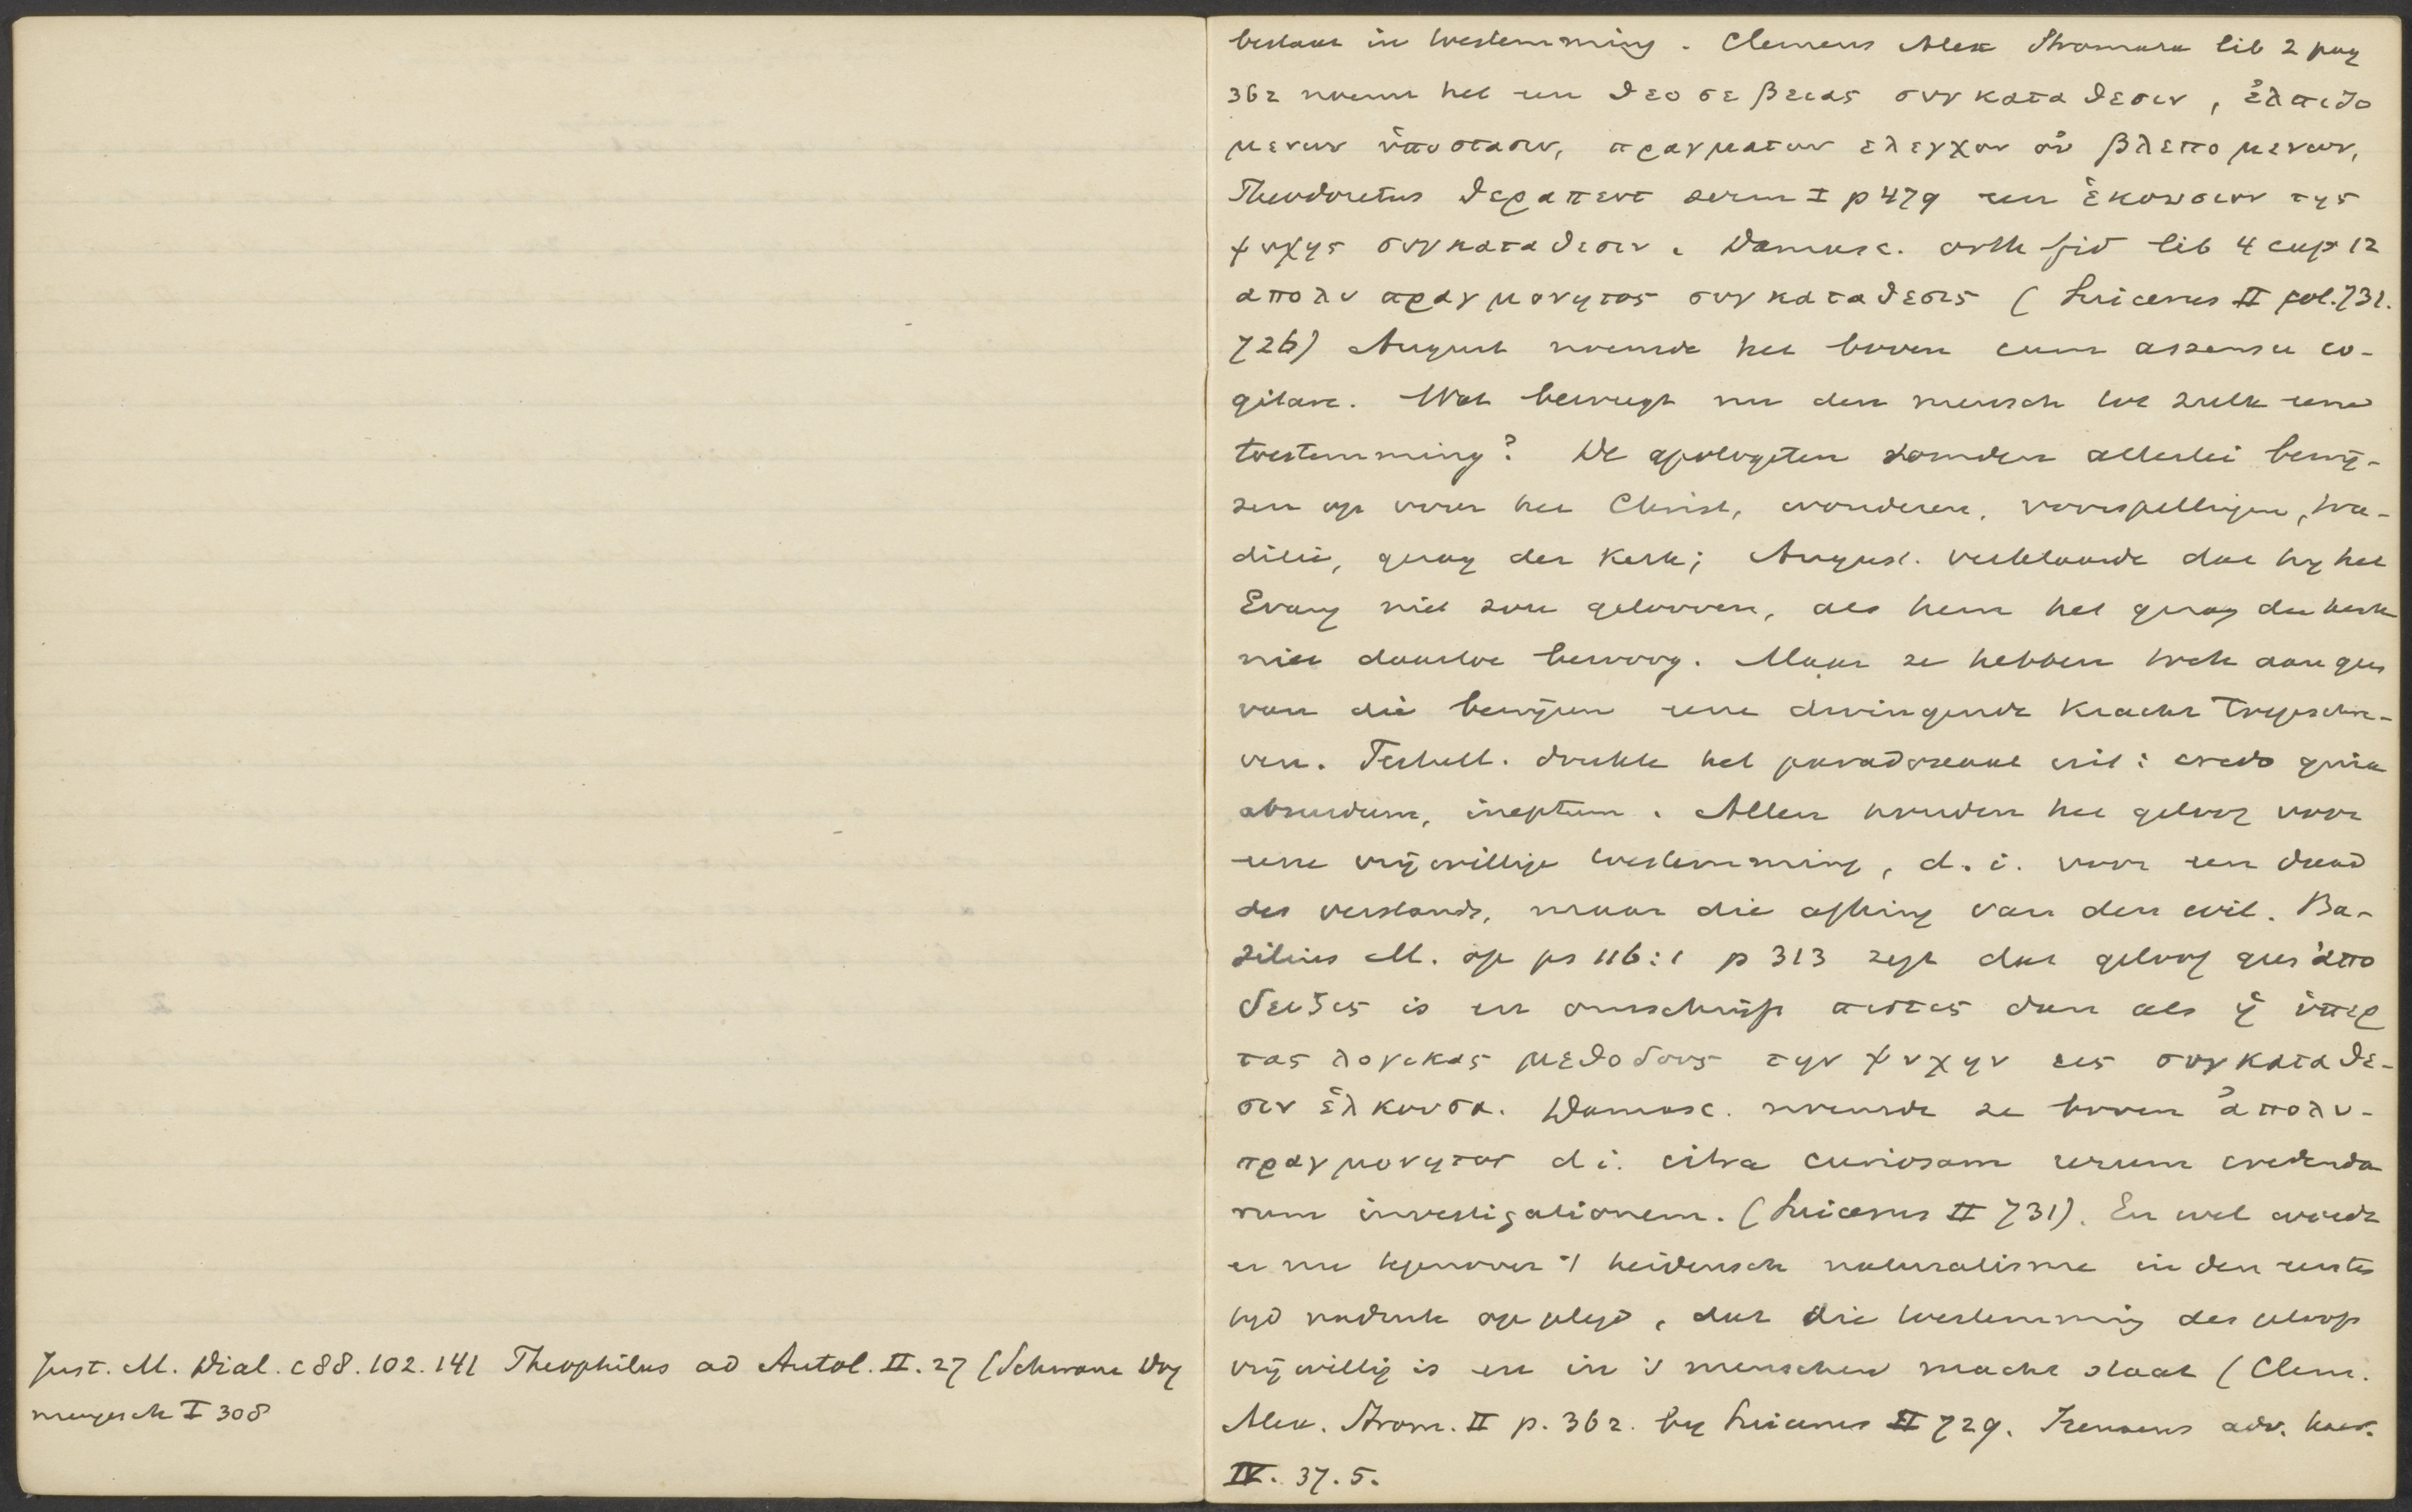 Just. M. Dial. c 88. 102. 141 Theophilus ad Autol. II. 27 (Schwane Dog
mengesch I 308
bestaat in toestemming. Clemens Alex Stromata lib 2 pag
362 noemt het een θεοσεβειας συνκαταθεσιν, ἐλπιζο
μενων ὑποστασιν, πραγματων ελεγχον οὐ βλεπομενων,
Theodoretus θεραπευτ serm I p 479 een ἑκουσιον της
ψυχης συγκαταθεσιν. Damasc. orth fid lib 4 cap 12
απολυπραγμονητος συγκαταθεσις (Suicerus II fol. 731.
726) August noemde het boven cum assensu co-
gitare. Wat beweegt nu den mensch toe zulk eene
toestemming? De apologeten somden allerlei bewij-
zen op voor het Christ, wonderen, voorspellingen, tra-
ditie, gezag der Kerk; August. verklaarde dat hij het
Evang niet zou gelooven, als hem het gezag der kerk
niet daartoe bewoog. Maar ze hebben toch aan geen
van die bewijzen eene dwingende kracht toegeschre-
ven. Tertull. drukte het paradoxaal uit: credo quia
absurdum, ineptum. Allen houden het geloof voor
eene vrijwillige toestemming, d. i. voor een daad
des verstands, maar die afhing van den wil. Ba-
silius M. op ps 116:1 p 313 zegt dat geloof geen ἀπο
δειξις is en omschrijft πιστις dan als ἡ ὑπερ
τας λογικας μεθοδους την ψυχην εις συγκαταθε-
σιν ἑλκουσα. Damasc. noemde ze boven ἀπολυ-
πραγμονητος d i. citra curiosam rerum credenda
rum investigationem. (Suicerus II 731). En wel werd
er nu tegenover 't heidensch naturalisme in den eersten
tijd nadruk op gelegd, dat die toestemming des geloofs
vrijwillig is en in 's menschen macht staat (Clem.
Alex. Strom. II p. 362. bij Suicerus II 729. Irenaeus adv. haer.
IV. 37. 5.